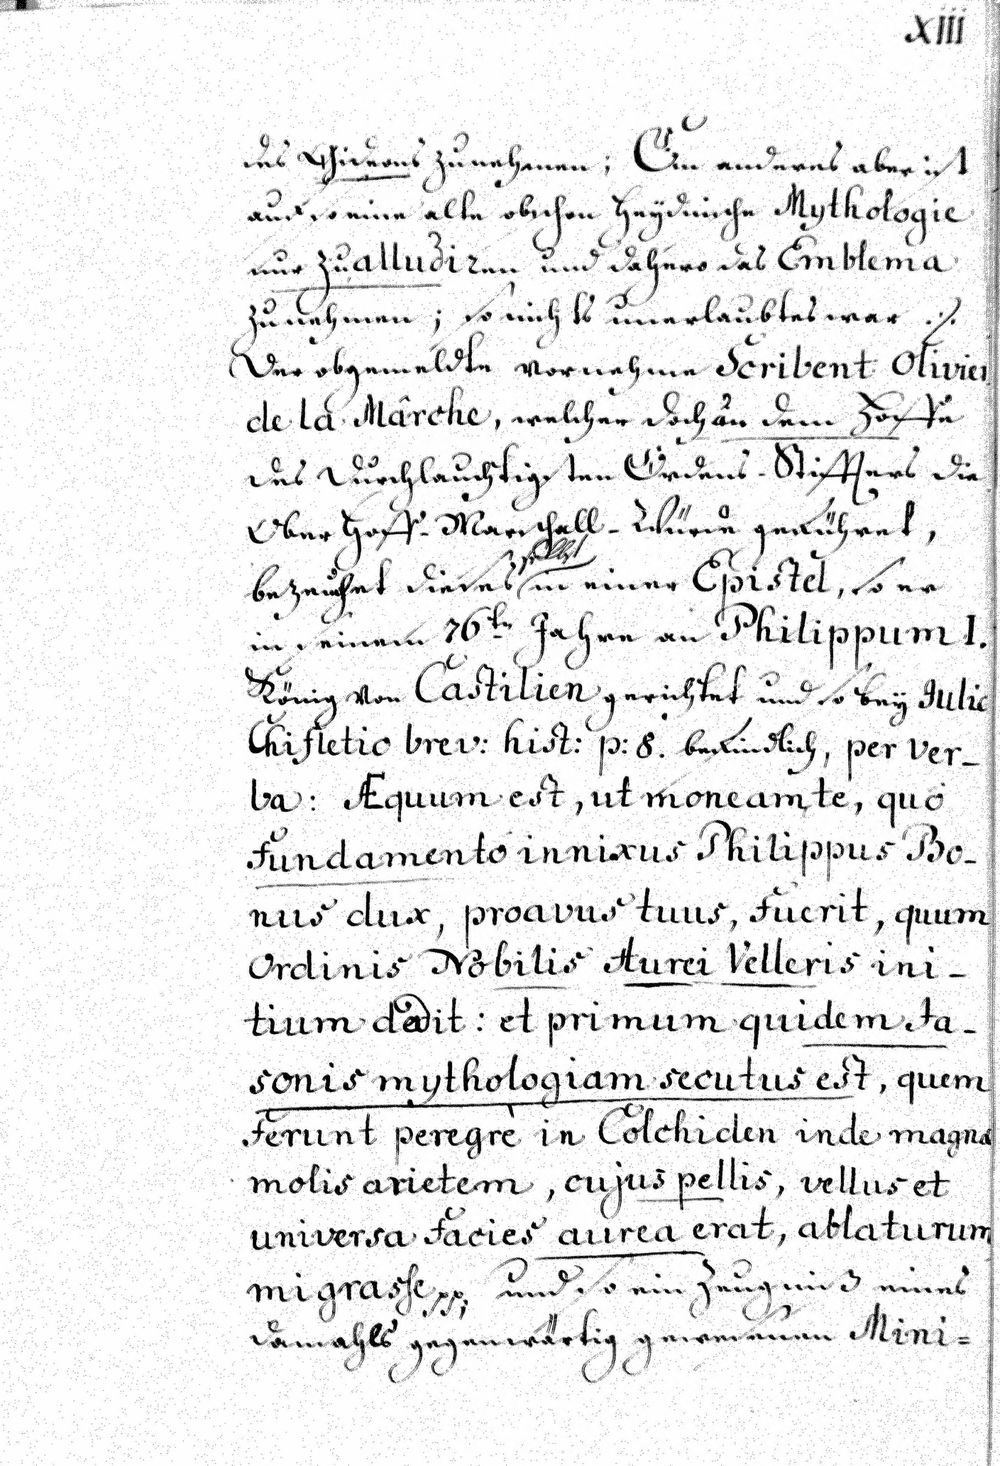 xiii
des Gideons zunehmen; Ein anderes aber ist
auf so eine alte obschon Heydnische Mythologie
nur zu alludiren und dahero das Emblema
zunehmen; so nichts unerlaubtes war ./.
Der obgemeldte vornehme Scribent Olivier
de la Mârche, welcher doch an dem Hoffe
des Durchlauchtigsten Ordens-Stiffters die
Ober Hoff-Marschall-Würde geführet,
bezeuget dieses selbst in einer Epistel, so er
in seinem 76ten Jahre an Philippum I.
König von Castilien gerichtet und so bey Julio
Chifletio brev: hist: p: 8. befindlich, per ver-
ba: Æquum est, ut moneam te, quo
fundamento innixus Philippus Bo-
nus dux, proavus tuus, fuerit, quum
Ordinis Nobilis Aurei Velleris ini-
tium dedit: et primum quidem Ja-
sonis mythologiam secutus est, quem
ferunt peregrè in Colchiden inde magnæ
molis arietem, cujus pellis, vellus et
universa facies aurea erat, ablaturum
migrasse pp; und so ein Zeugniß eines
damahls gegenwärtig gewesenen Mini=